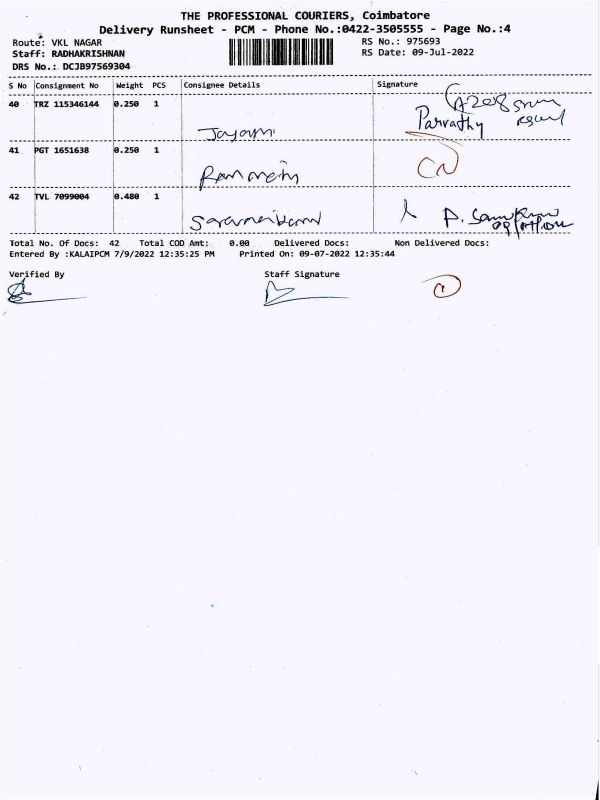 THE PROFESSIONAL COURIERS, Coimbatore
Delivery Runsheet - PCM - Phone No.:0422-3505555 - Page No.:4
Route: VKL NAGAR
RS No.: 975693
Staff: RADHAKRISHNAN
RS Date: 09-Jul-2022
DRS No.: DCJB97569304
S No Consignment No Weight PCS Consignee Details Signature
40 TRZ 115346144 0.250 1
Parvathy
41 PGT 1651638 0.250 1
42 TVL 7099004 0.480 1
Total No. Of Docs: 42 Total COD Amt: 0.00 Delivered Docs: Non Delivered Docs:
Entered By :KALAIPCM 7/9/2022 12:35:25 PM Printed On: 09-07-2022 12:35:44
Verified By Staff Signature